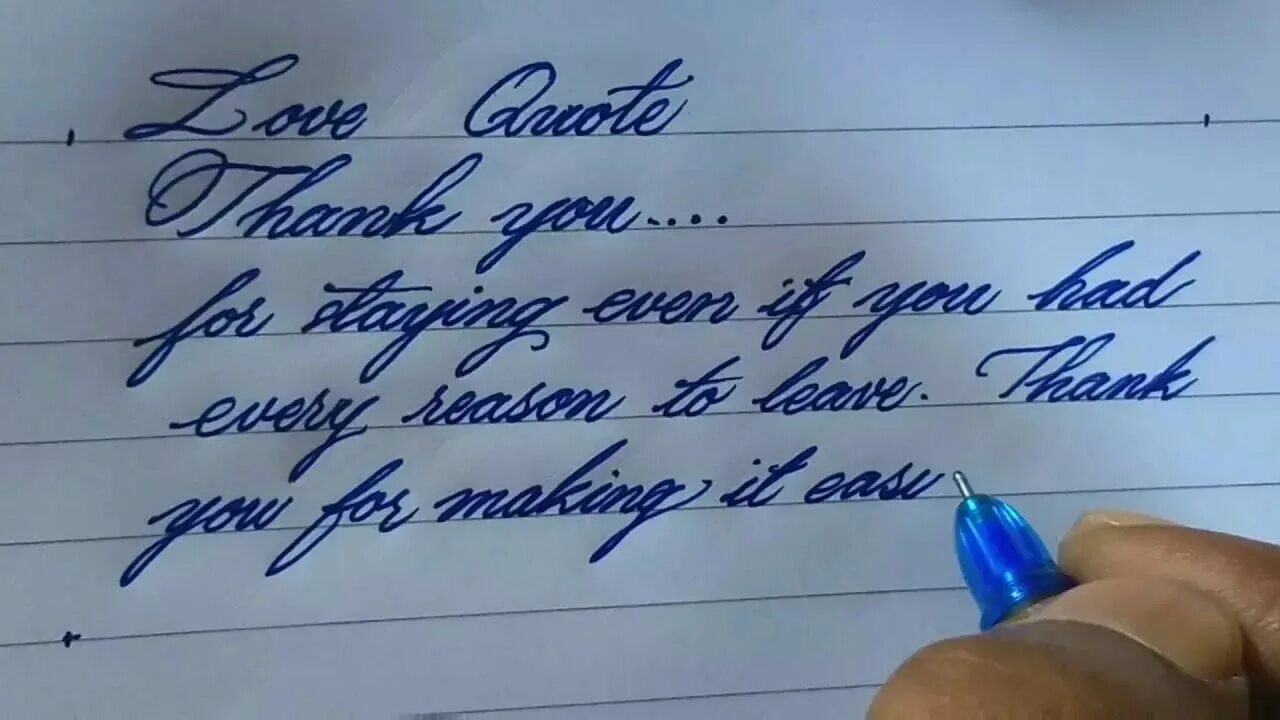 Love Quote
Thank you....
for staying even if you had
every reason to leave. Thank
you for making it eas